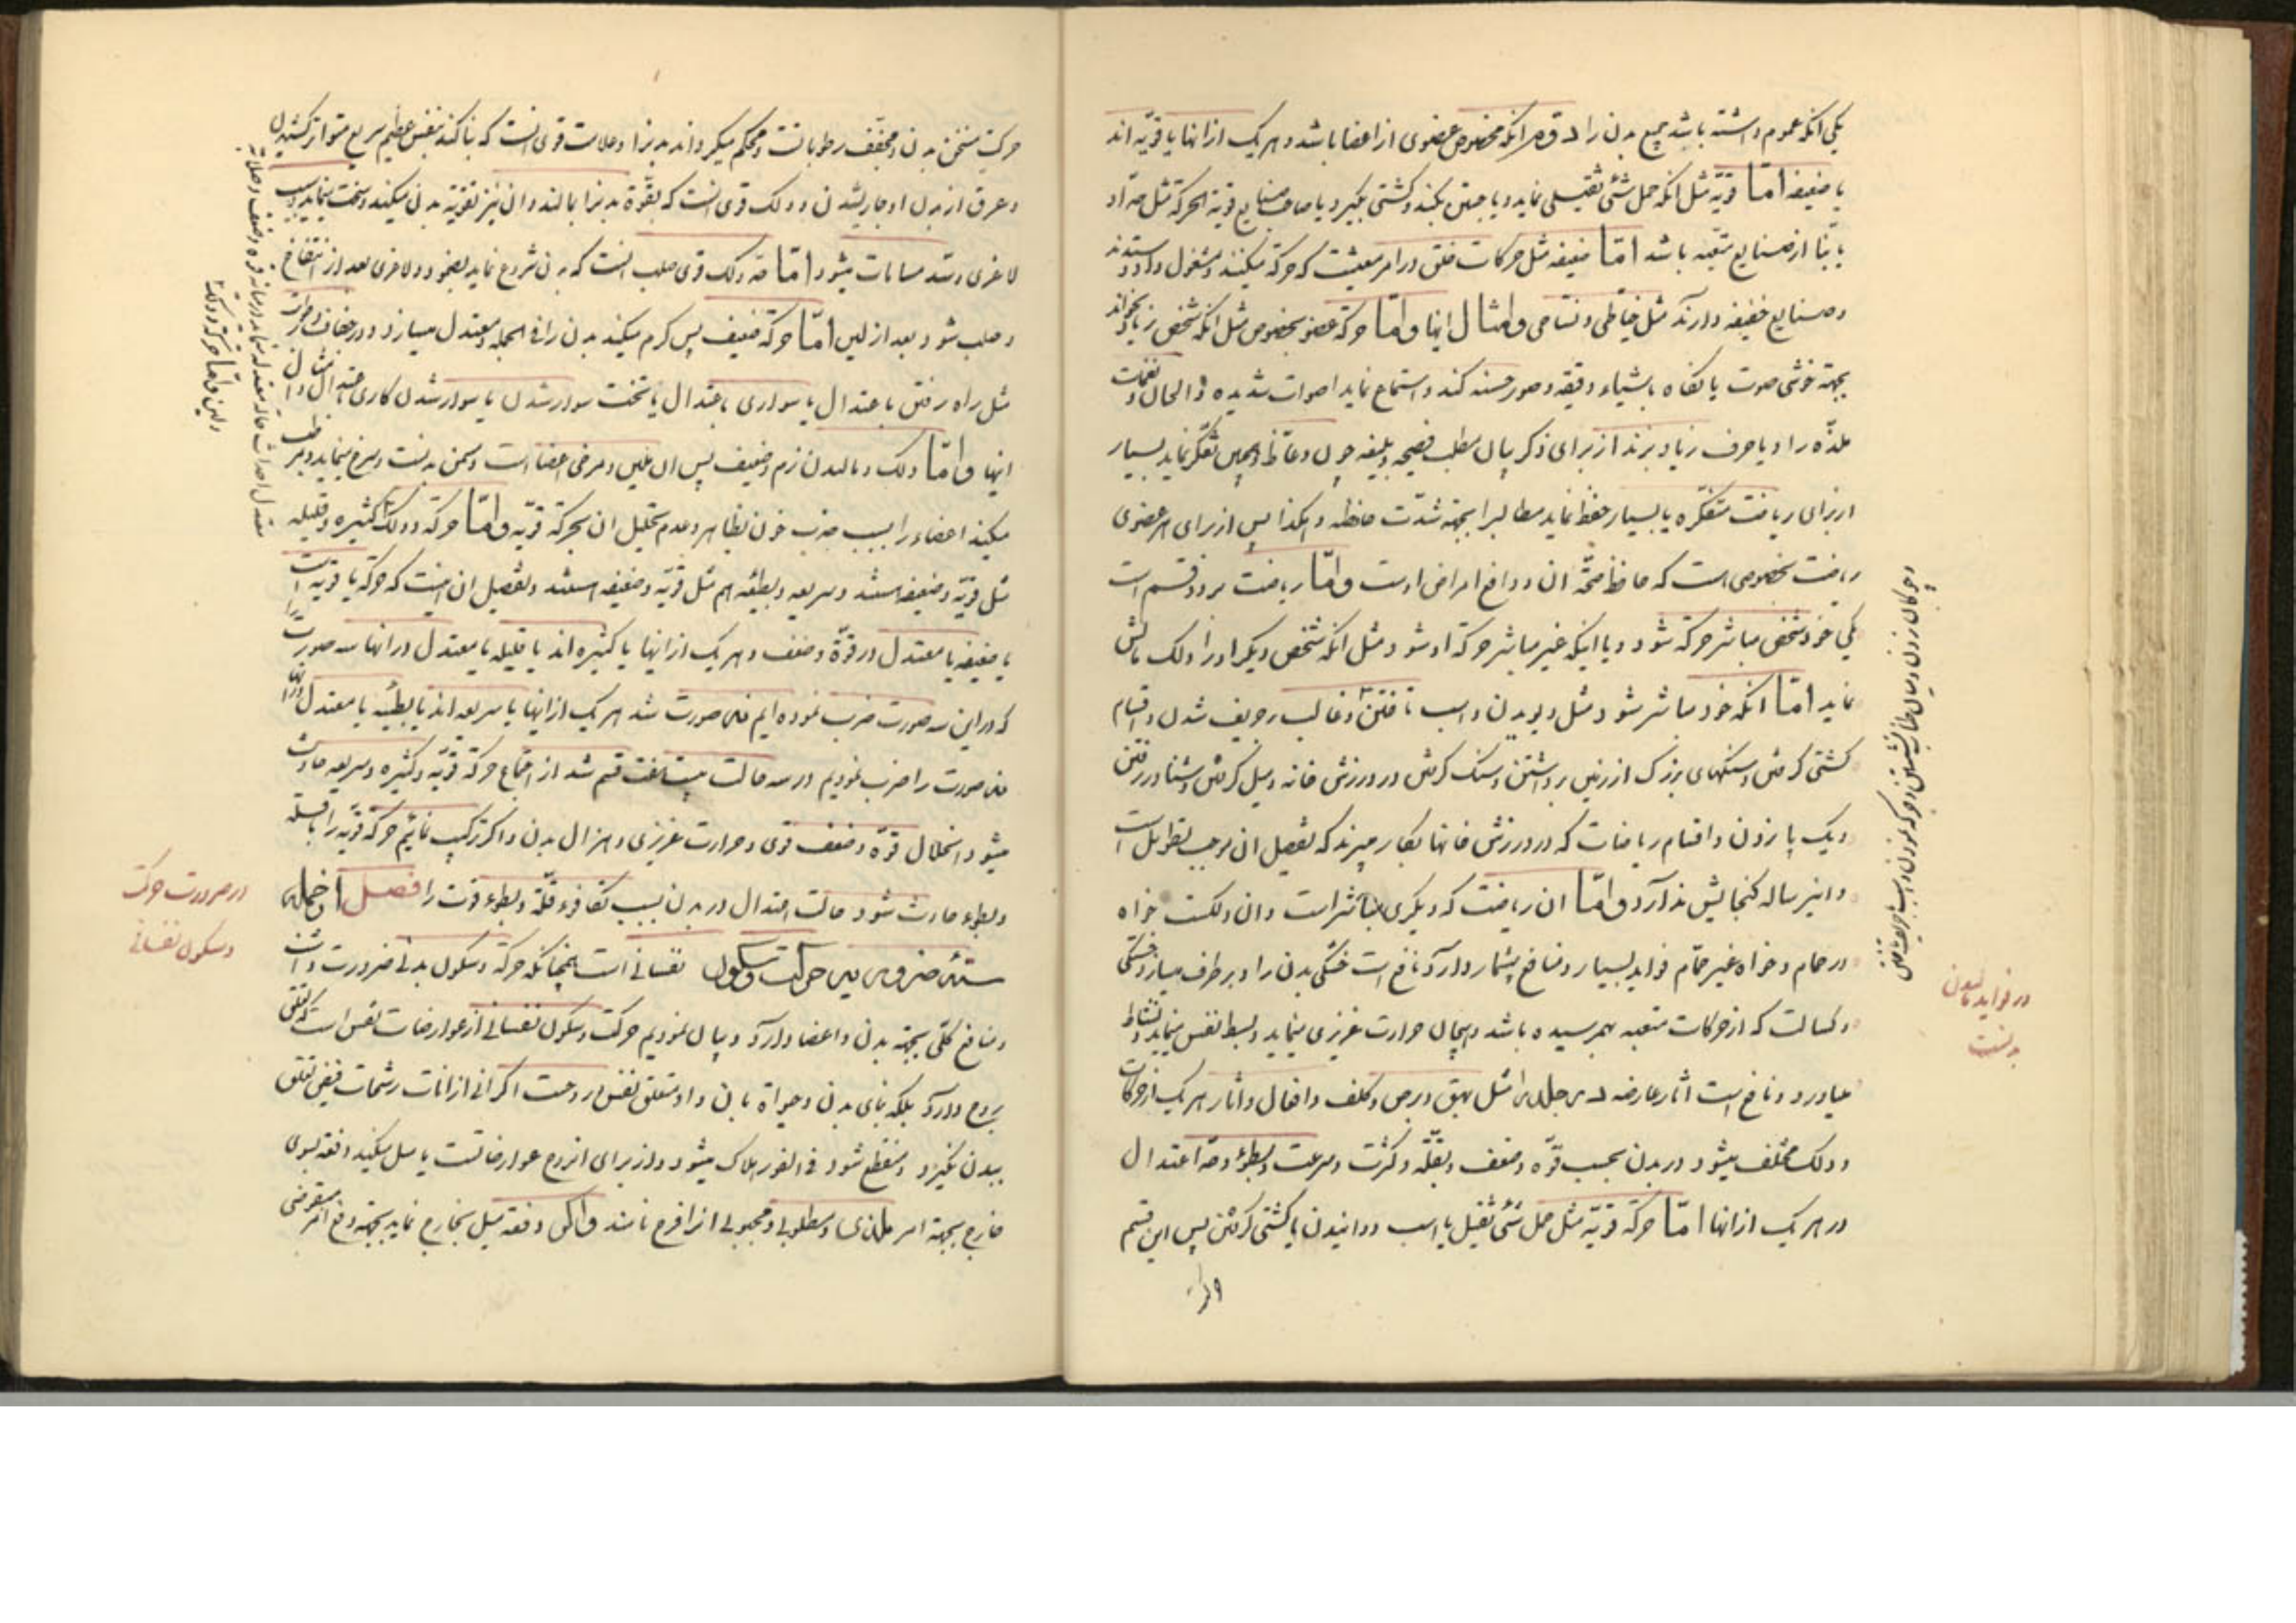 یکی انکه عموم داشته باشد جمیع بدن را دوم انکه مخصوص عضوی از اعضا باشد و هر یک از انها یا قویّه اند
یا ضعیفه امّا قویّه مثل انکه حمل شئی ثقیلی نماید و یا جستن بکند و کشتی بگیرد یا صاحب صنایع قویة الحرکة مثل حدّاد
یا بنّا از صنایع متعبه باشد امّا ضعیفه مثل حرکات خلق در امر معیشت که حرکة میکنند و مشغول داد و ستدند
و صنایع خفیفه دارند مثل خیّاطی و نسّاجی و امثال اینها و امّا حرکة عضو مخصوص مثل انکه شخص زیاد بخواند
بجهة خوشی صوت یا نگاه باشیاء دقیقه و صور حسنه کند و استماع نماید اصوات شدیده و الحان و نغمات
ملذّه را و یا حرف زیاد بزند از برای ذکر بیان مطلب فصیحه و بلیغه چون وعّاظ و همچنین تفکّر نماید بسیار
از برای ریاضت متفکّره یا بسیار حفظ نماید مطالب را بجهة شدّت حافظه و هکذا پس از برای هر عضوی
ریاضت مخصوصی است که حافظ صحّة ان و دافع امراض اوست و امّا ریاضت بر دو قسم است
یکی خود شخص مباشر حرکة شود و یا اینکه غیر مباشر حرکة او شود مثل انکه شخص دیگر او را دلک و مالش
نماید امّا انکه خود مباشر شود مثل دویدن و اسب تاختن و غالب بر حریف شدن و اقسام
کشتی گرفتن و سنگهای بزرگ از زمین برداشتن و سنگ گرفتن در ورزش خانه و میل گرفتن و شنا در رفتن
و یک پا زدن و اقسام ریاضات که در ورزش خانها بکار میبرند که تفصیل ان موجب تطویل است
و این رساله گنجایش ندارد و امّا ان ریاضت که دیگری مباشر است و ان دلکست خواه
در حمام و خواه غیر حمّام فواید بسیار و منافع بیشمار دارد نافع است خشکی بدن را و بر طرف میسازد خستگی
و کسالت که از حرکات متعبه بهم رسیده باشد و هیجان حرارت غریزی مینماید و بسط نفس مینماید و نشاط
میاورد و نافع است اثار عارضه در جلد را مثل بهق و برص و کلف و افعال و اثار هر یک از حرکات
و دلک مختلف میشود در بدن بحسب قوّه و ضعف و بقلّة و کثرت و سرعت و بطؤ و حدّ اعتدال
در هر یک از انها امّا حرکة قویّه مثل حمل شئ ثقیل یا اسب دوانیدن یا کشتی گرفتن پس این قسم
در فواید مالیدن
بدنست
حرکت مسخّن بدن و مجفّف رطوباتست و محکم میگرداند بدنرا و علامت قوی انست که بنا کند نفس عظیم سریع متواتر کشیدن
و عرق از بدن او جاری شدن و دلک قوی انست که بقوّة بدنرا بمالند و ان نیز تقویة بدن میکند و سخت مینماید و سبب
لاغری و سدّ مسامات میشود امّا حد دلک قوی صلب انست که بدن شروع نماید بضمور و لاغری بعد از انتفاخ
و صلب شود بعد از لین امّا حرکة ضعیف پس گرم میکند بدن را فی الجمله و معتدل میسازد
مثل راه رفتن باعتدال یا سواری باعتدال یا تخت سوار شدن یا سوار شدن کاری و امثال
اینها و امّا دلک و مالیدن نرم و ضعیف پس ان ملیّن و مرخی اعضا است و مسمّن بدنست و سرخ مینماید
میکند اعضاء را بسبب جذب خون بظاهر و عدم تحلیل ان بحرکة قویّه و امّا حرکة و دلک کثیره و قلیله
مثل قویّه و ضعیفه است و سریعه و بطیئه هم مثل قویّه و ضعیفه هستند و تفصیل ان اینست که حرکة یا قویّه است
یا ضعیفه یا معتدل در قوّة و ضعف و هر یک از انها یا کثیره اند یا قلیله یا معتدل در انها سه صورت
که در این سه صورت ضرب نموده ایم نه صورت شد هر یک از انها یا سریعه اند یا بطیئه یا معتدل
نه صورت را ضرب نمودیم در سه حالت بیست هفت قسم شد از اجتماع حرکة قویّه و کثیره و سریعه حادث
میشود انحلال قوّه و ضعف قوی و حرارت غریزی و هزال بدن و اگر ترکیب نمائیم حرکة قویّه را با قلیله
و بطوء حادث شود حالت اعتدال در بدن بسبب تکافوء قلّة و بطوء قوت را فصل از جمله
ستّه ضروریه حرکت و سکون نفسانی است همچنانکه حرکة و سکون بدنی ضرورت داشت
و منافع کلّی بجهة بدن و اعضا دارد و بیان نمودیم حرکت و سکون نفسانی از عوارضات نفس است که تعلق
بروح دارد بلکه بنای بدن و حیوة بان
ببدن نگیرد و منقطع شود فی الفور هلاک میشود و از برای انروح عوارضاتست یا میل میکند دفعة بسوی
خارج بجهة امر ملذی و مطلوبی و محبوبی و دفعة میل بخارج نماید بجهة دفع امر
در ضرورت حرکت
و سکون نفسانی